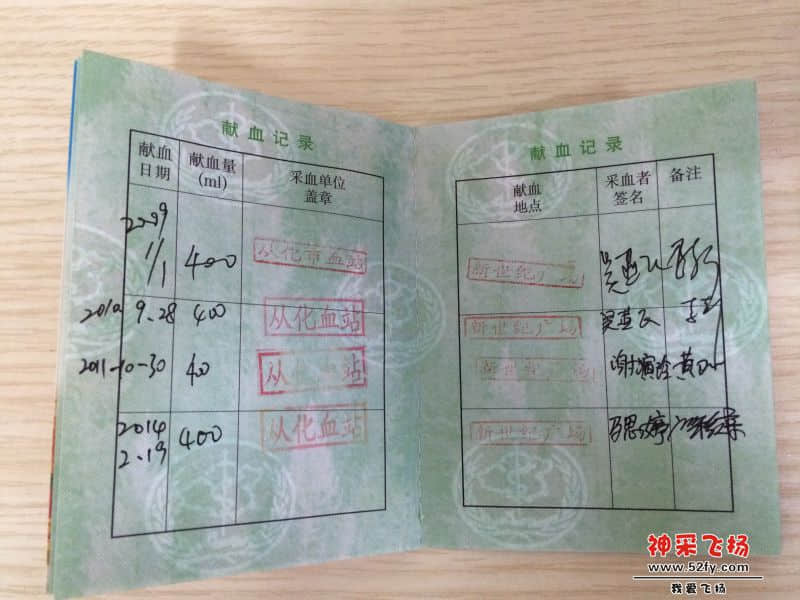 献血记录
献血
日期
献血量
(ml)
采血单位
盖章
2009
1/1
400
从化市血站
2010 9.28
400
从化血站
2011-10-30
40
从化血站
2014
2.19
400
从化血站
献血记录
献血
地点
采血者
签名
备注
新世纪广场
新世纪广场
新世纪广场
新世纪广场
神采飞扬
www.52fy.com
我爱飞扬